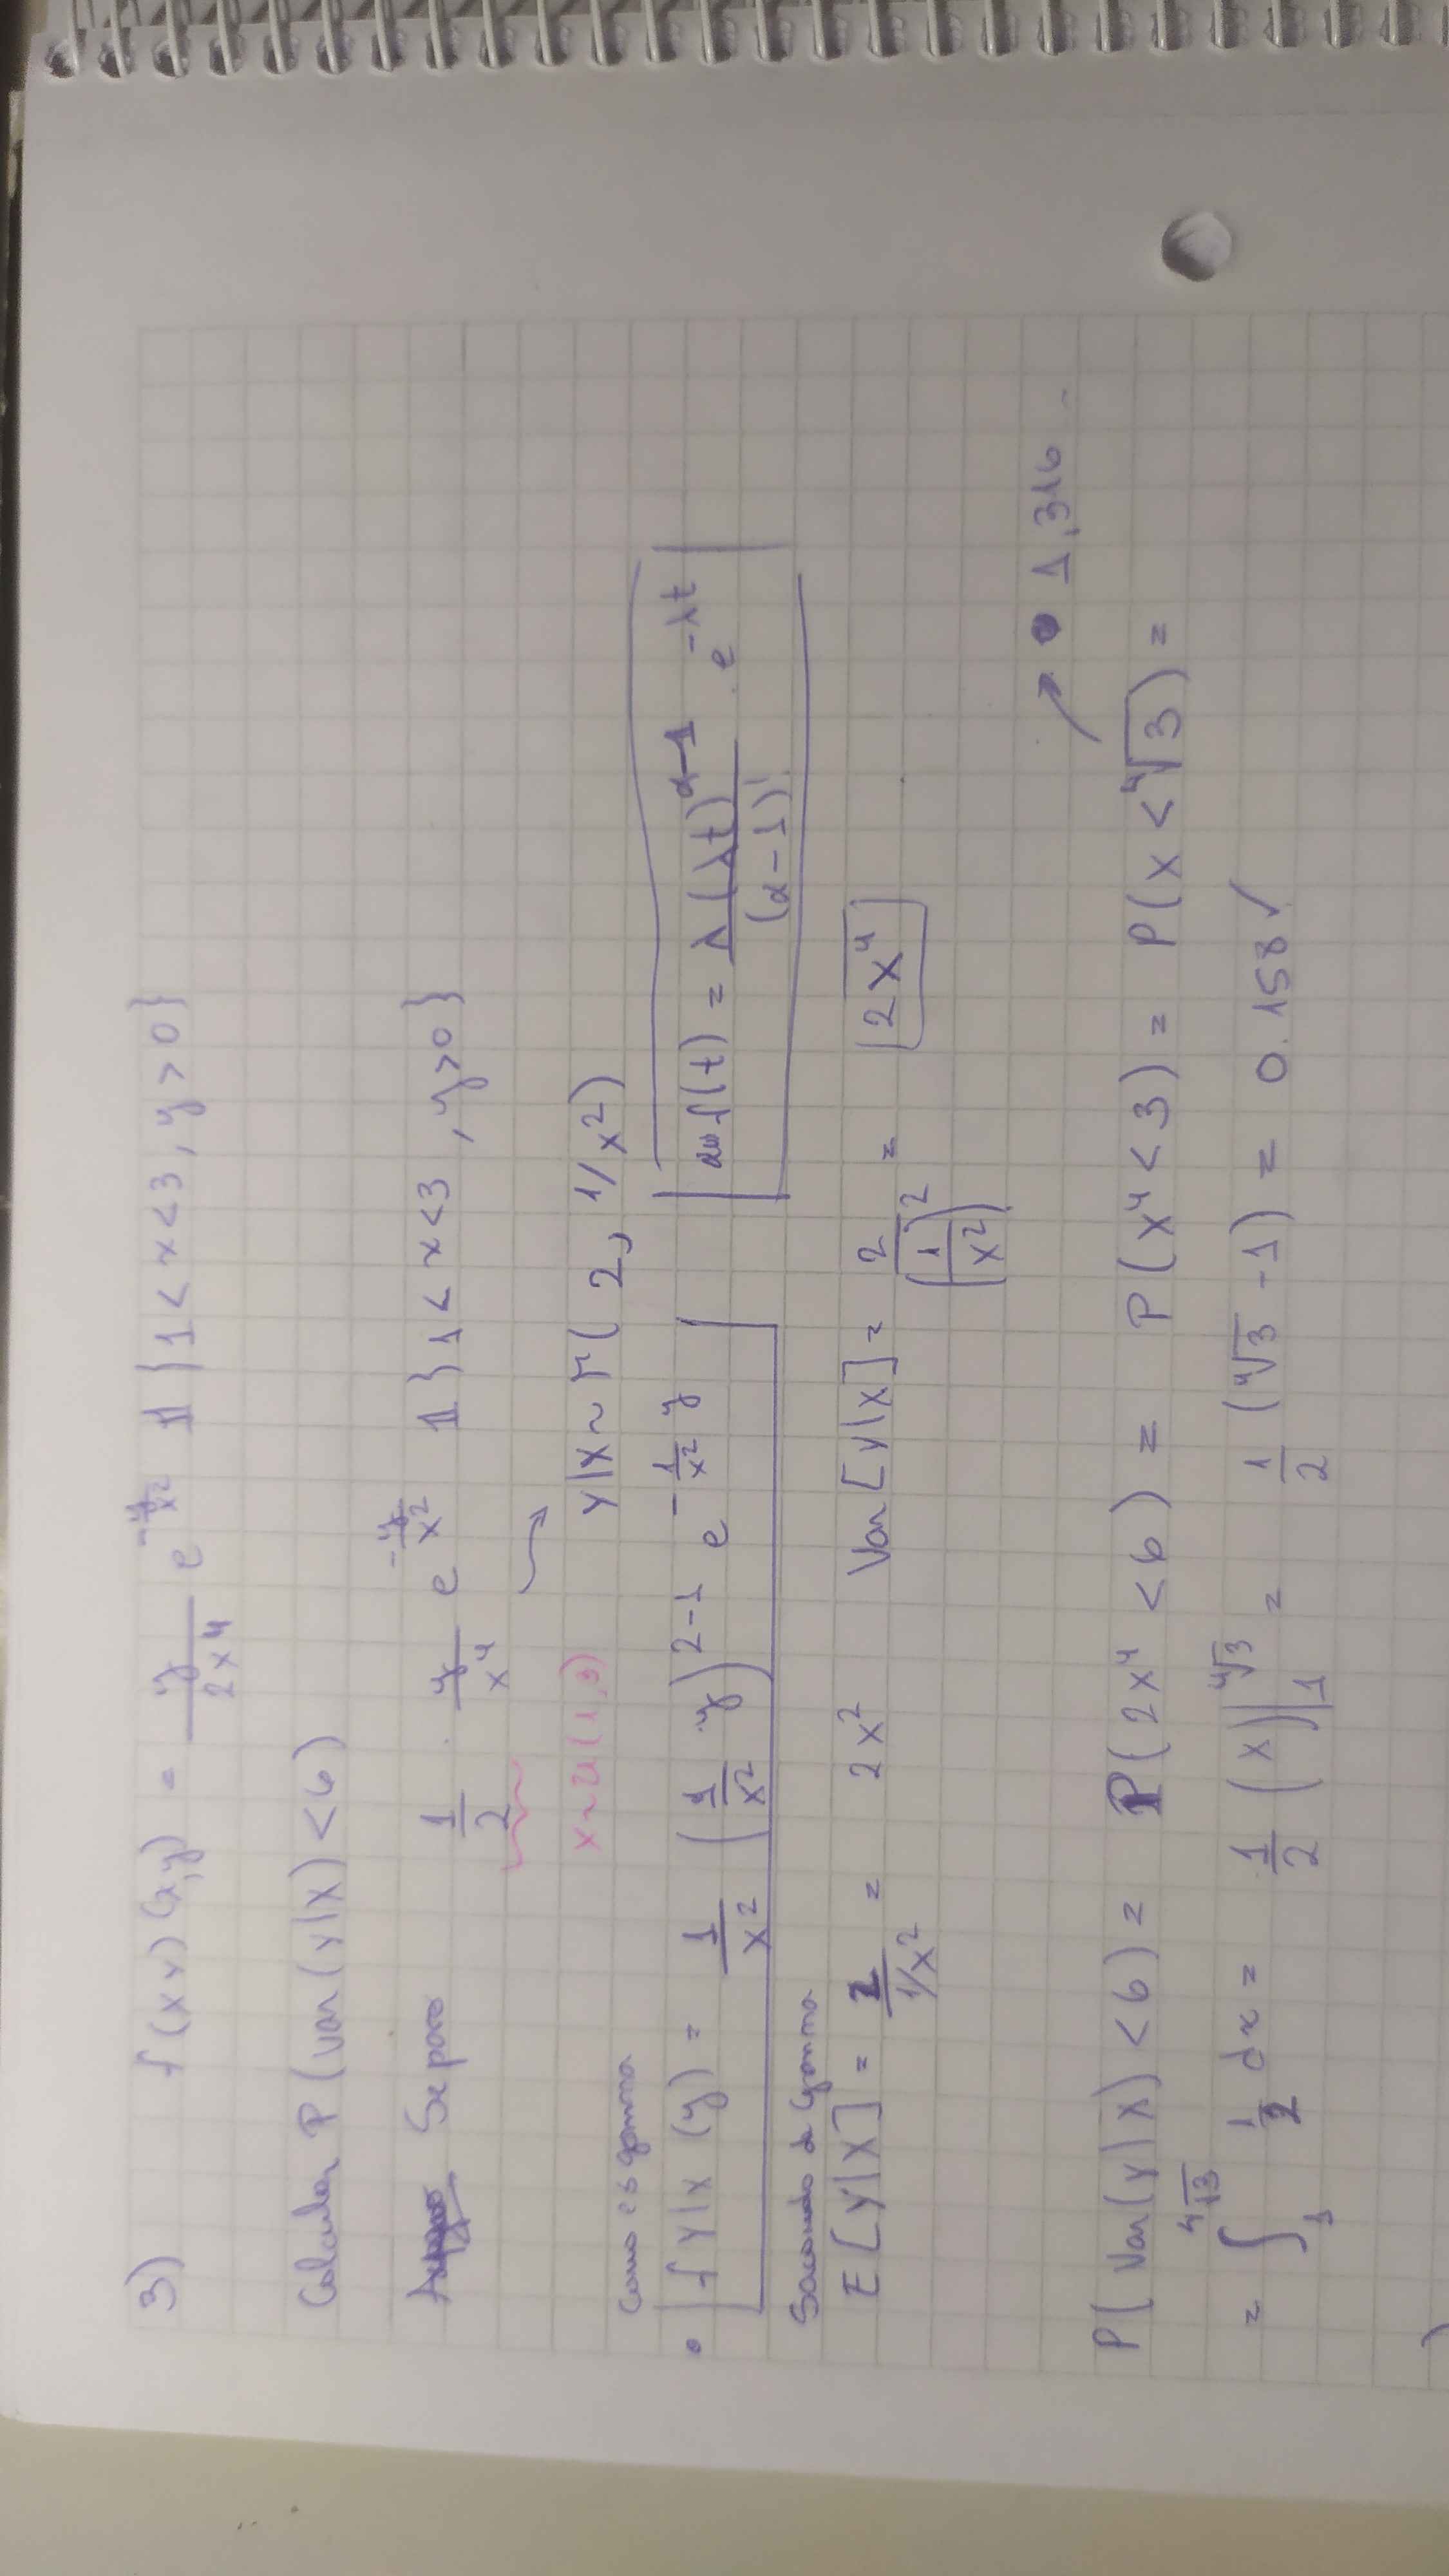 3) f(XY)(x,y) = y/2x⁴ e^(-y/x²) 𝟙{1<x<3, y>0}
Calcular P(Var(Y|X)<6)
Separo 1/2 · y/x⁴ e^(-y/x²) 𝟙{1<x<3, y>0}
X~U(1,3) Y|X ~ Γ(2, 1/x²)
Como es gamma
• fY|X(y) = 1/x² (1/x² y)^(2-1) e^(-1/x² y)
f(t) = λ(λt)^(α-1)/(α-1)! · e^(-λt)
Sacando de Gamma
E[Y|X] = 2/(1/x²) = 2x² Var[Y|X] = 2/(1/x²)² = 2x⁴
1,316
P(Var(Y|X)<6) = P(2x⁴<6) = P(x⁴<3) = P(x<⁴√3) =
= ∫₁^(⁴√3) 1/2 dx = 1/2 (x)|₁^(⁴√3) = 1/2 (⁴√3 - 1) = 0.158 ✓